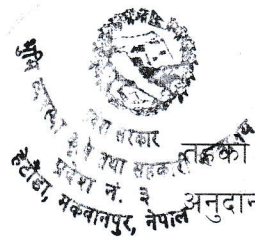 प्रदेश सरकार
भूमि व्यवस्था कृषि तथा सहकारी
प्रदेश नं. ३
हेटौंडा, मकवानपुर, नेपाल
तहको
अनुदान